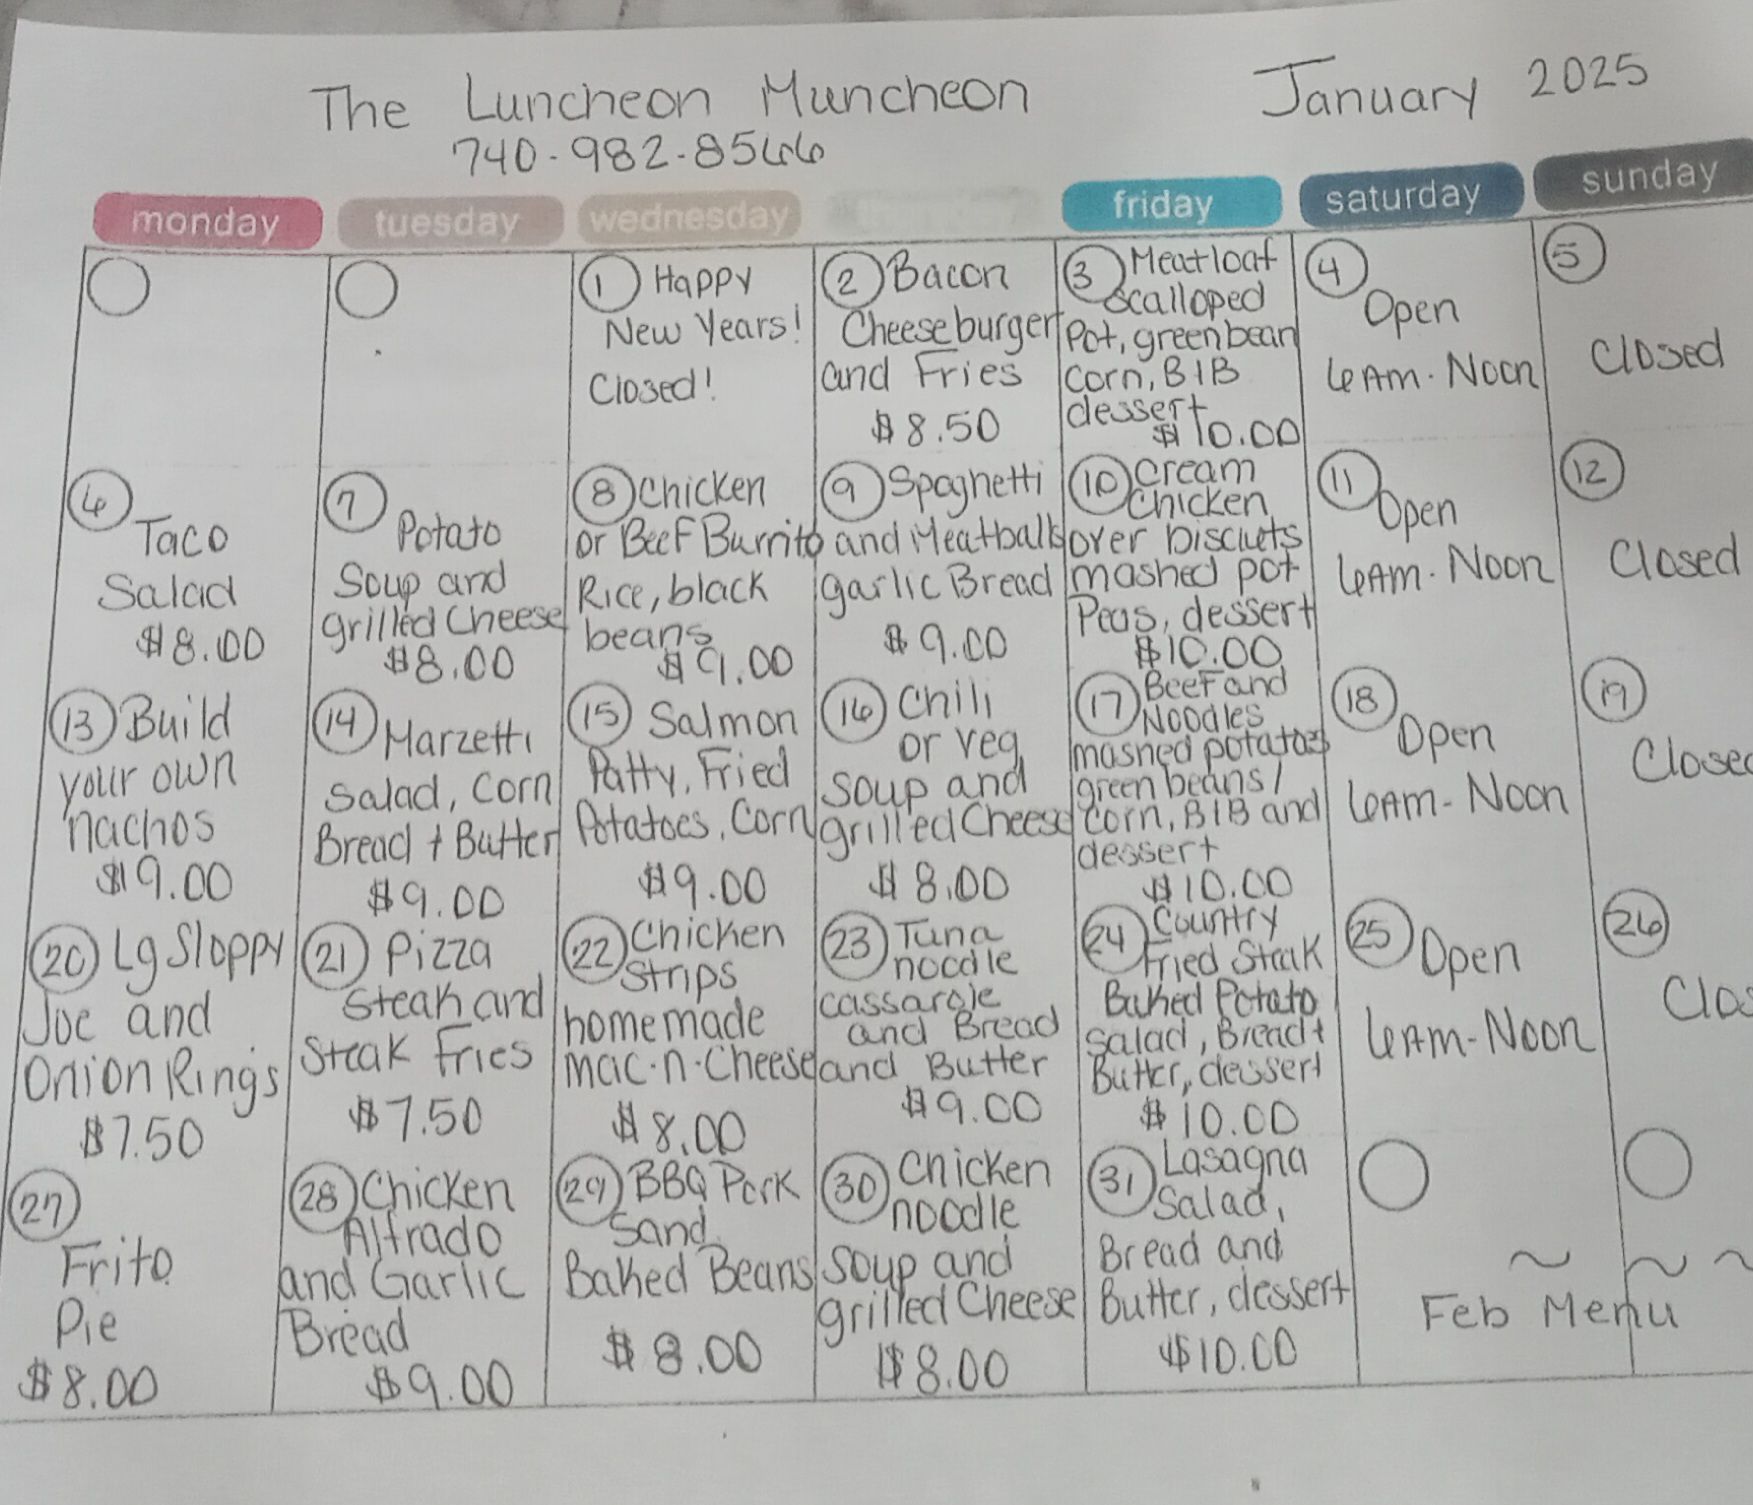 The Luncheon Muncheon
January 2025
740-982-8566
monday
tuesday
wednesday
friday
saturday
sunday
1 Happy
New Years!
Closed!
2 Bacon
Cheeseburger
and Fries
$8.50
3 Meatloaf
scalloped
Pot, greenbean
corn, B1B
dessert
$10.00
4
Open
6AM. Noon
5
Closed
6
Taco
Salad
$8.00
7
Potato
Soup and
grilled Cheese
$8.00
8 Chicken
or Beef Burrito
Rice, black
beans
$9.00
9 Spagnetti
and Meatballs
garlic Bread
$9.00
10 cream
Chicken
over biscuts
mashed pot
Peas, dessert
$10.00
11
Open
6AM. Noon
12
Closed
13 Build
your own
nachos
$9.00
14 Marzetti
Salad, Corn
Bread + Butter
$9.00
15 Salmon
Patty, Fried
Potatoes, Corn
$9.00
16 Chili
or veg
soup and
grilled Cheese
$8.00
17 Beef and
Noodles
mashed potatoes
green beans/
corn, B1B and
dessert
$10.00
18
Open
6AM- Noon
19
Closed
20 Lg Sloppy
Joe and
Onion Rings
$7.50
21 Pizza
Steak and
Steak Fries
$7.50
22 Chicken
Strips
homemade
mac-n-Cheese
$8.00
23 Tuna
noodle
cassarole
and Bread
and Butter
$9.00
24 Country
Fried Steak
Baked Potato
Salad, Bread+
Butter, dessert
$10.00
25 Open
6AM-Noon
26
Clos
27
Frito
Pie
$8.00
28 Chicken
Alfrado
and Garlic
Bread
$9.00
29 BBQ Pork
Sand.
Baked Beans
$8.00
30 Chicken
noodle
Soup and
grilled Cheese
$8.00
31 Lasagna
Salad,
Bread and
Butter, dessert
$10.00
~ ~ ~
Feb Menu